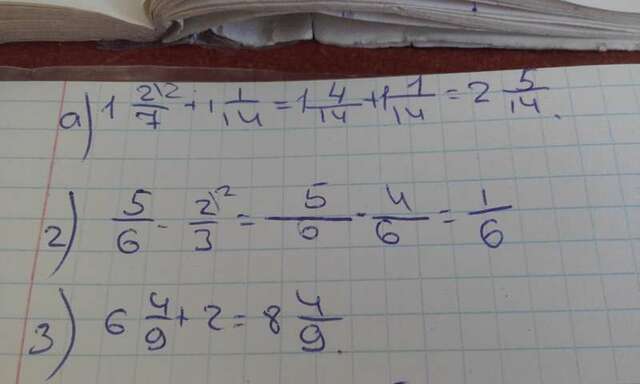 a) 1 2\2/7 + 1 1/14 = 1 4/14 + 1 1/14 = 2 5/14.
2) 5/6 - 2\2/3 = 5/6 - 4/6 = 1/6
3) 6 4/9 + 2 = 8 4/9.